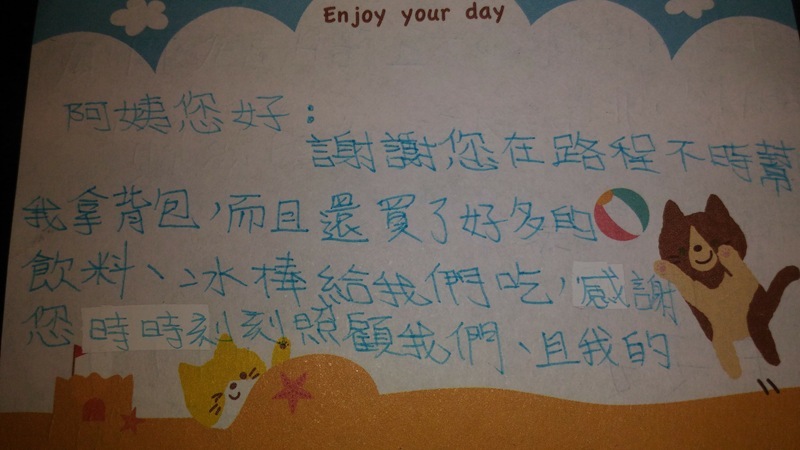 Enjoy your day
阿姨您好：
謝謝您在路程不時幫
我拿背包，而且還買了好多的
飲料、冰棒給我們吃，感謝
您時時刻刻照顧我們、且我的